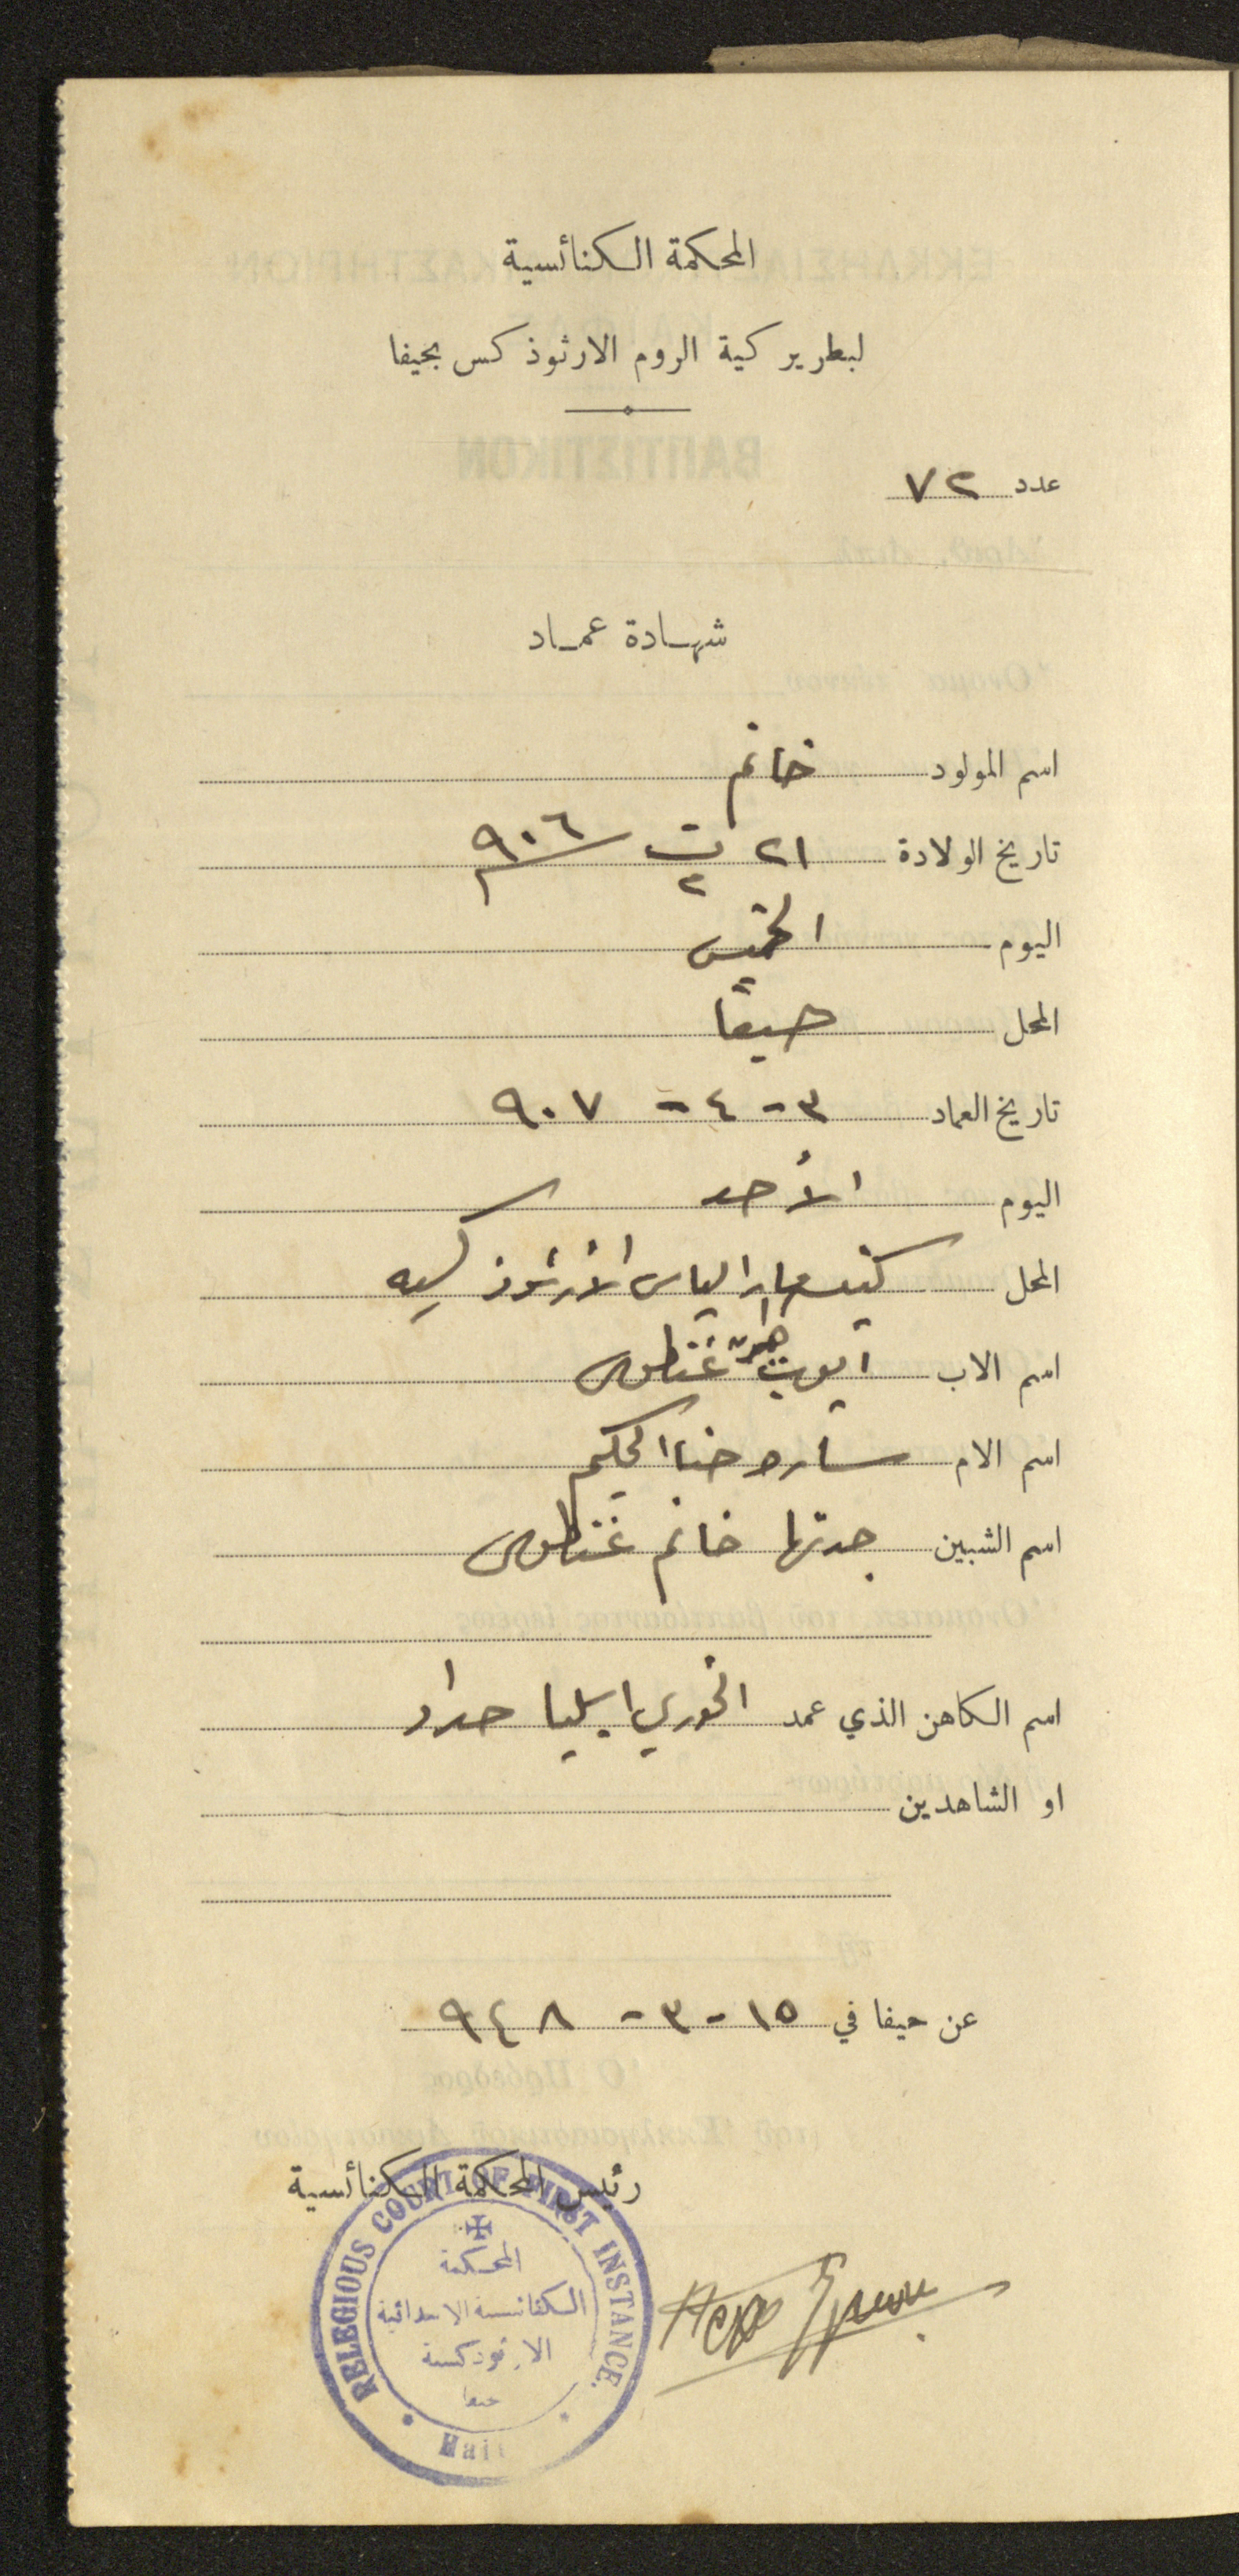 المحكمة الكنائسية
لبطريركية الروم الارثوذكس بحيفا
عدد ٧٢
شهادة عماد
اسم المولود خانم
تاريخ الولادة ٢١ ت٢ ٩٠٦
اليوم الخميس
المحل حيفا
تاريخ العماد ٣-٤-٩٠٧
اليوم الأحد
المحل كنيسة مار الياس الأرثوذكسيه
اسم الاب ايوب غنطوس
اسم الام ساره حنا الحكيم
اسم الشبين جدتها خانم غنطوس
اسم الكاهن الذي عمد الخوري ايليا حداد
او الشاهدين
عن حيفا في ١٥-٣-٩٤٨
رئيس المحكمة الكنائسية
RELEGIOUS COURT OF FIRST INSTANCE.
المحكمة
الكنائسية الابتدائية
الارثوذكسية
حيفا